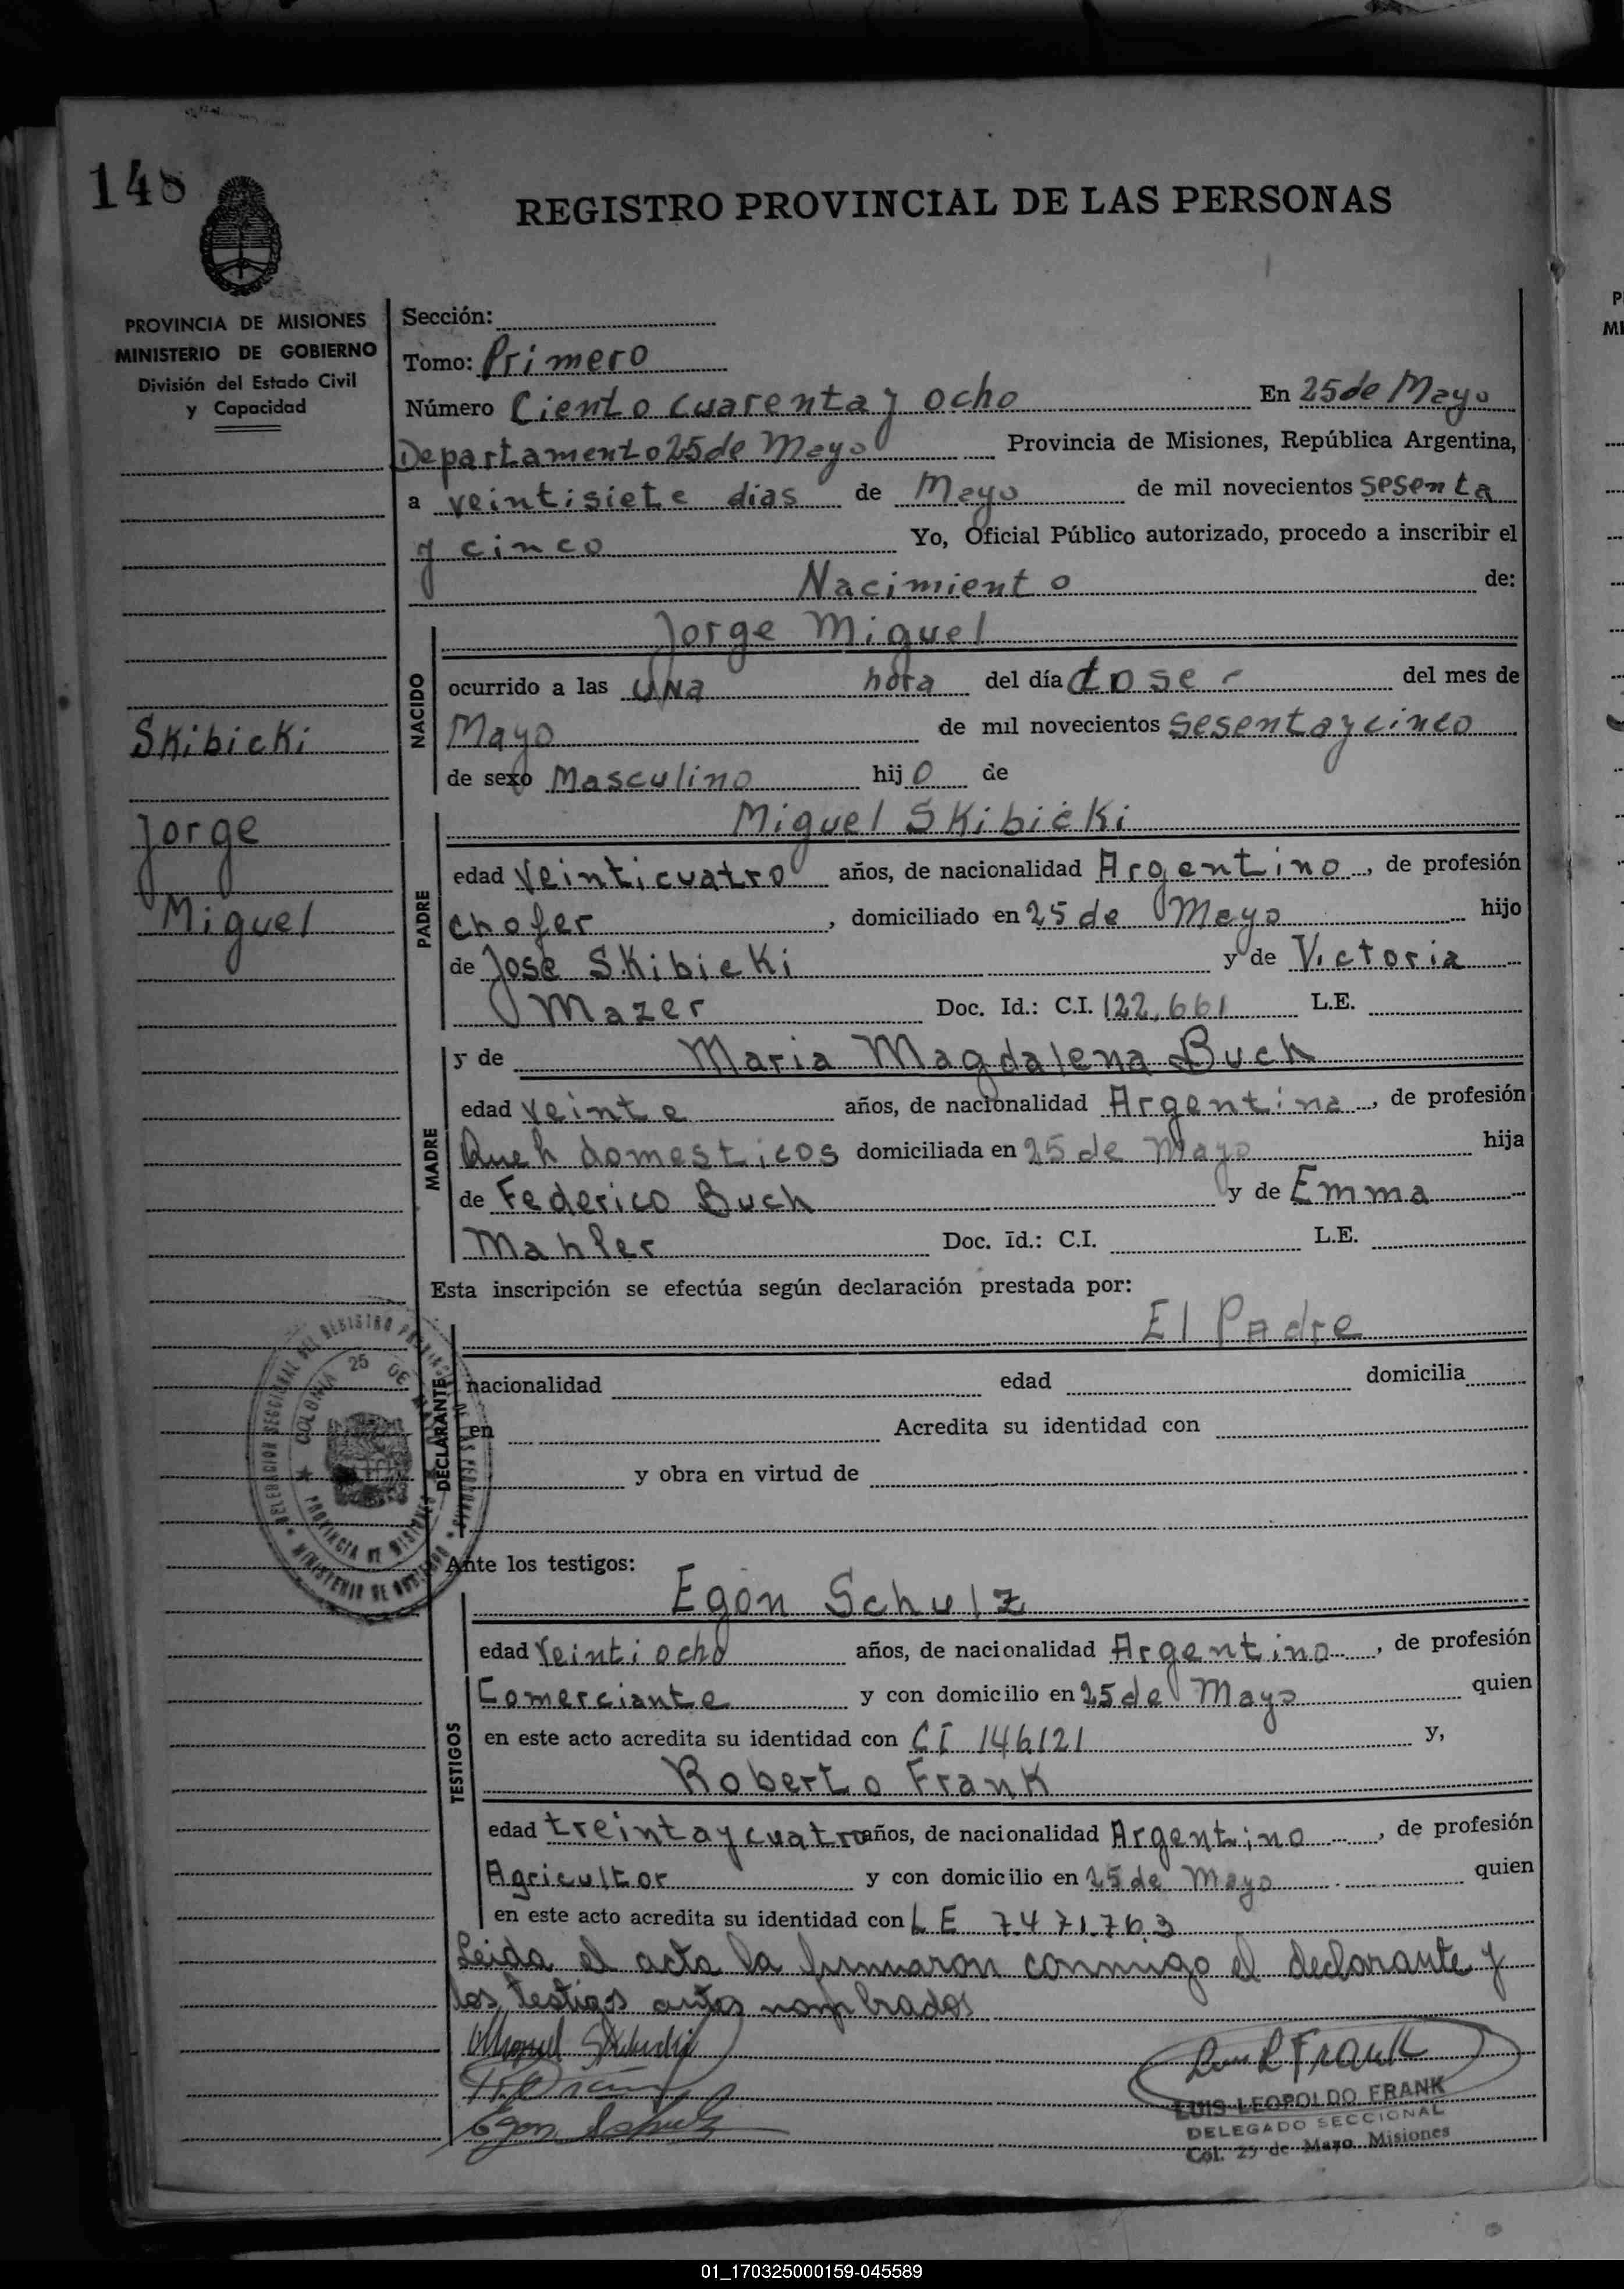 148
REGISTRO PROVINCIAL DE LAS PERSONAS
PROVINCIA DE MISIONES
MINISTERIO DE GOBIERNO
División del Estado Civil
y Capacidad
Skibicki
Jorge
Miguel
Sección:
Tomo: Primero
Número Ciento cuarenta y ocho En 25 de Mayo
Departamento 25 de Mayo Provincia de Misiones, República Argentina,
a veintisiete dias de Mayo de mil novecientos sesenta
y cinco Yo, Oficial Público autorizado, procedo a inscribir el
Nacimiento de:
NACIDO
Jorge Miguel
ocurrido a las una hora del día dose del mes de
Mayo de mil novecientos sesenta y cinco
de sexo Masculino hijo de
PADRE
Miguel Skibicki
edad Veinticuatro años, de nacionalidad Argentino, de profesión
chofer, domiciliado en 25 de Mayo hijo
de José Skibicki y de Victoria
Mazer Doc. Id.: C.I. 122.661 L.E.
MADRE
y de Maria Magdalena Buch
edad veinte años, de nacionalidad Argentina, de profesión
Queh domesticos domiciliada en 25 de Mayo hija
de Federico Buch y de Emma
Mahler Doc. Id.: C.I. L.E.
Esta inscripción se efectúa según declaración prestada por:
DECLARANTE
El Padre
nacionalidad edad domicilia
en Acredita su identidad con
y obra en virtud de
COLONIA 25 DE
PROVINCIA DE MISIONES
Ante los testigos:
TESTIGOS
Egon Schulz
edad Veintiocho años, de nacionalidad Argentino, de profesión
Comerciante y con domicilio en 25 de Mayo quien
en este acto acredita su identidad con CI 146121 y,
Roberto Frank
edad treinta y cuatro años, de nacionalidad Argentino, de profesión
Agricultor y con domicilio en 25 de Mayo quien
en este acto acredita su identidad con LE 7.471.763
Leida el acta la firmaron conmigo el declarante y
los testigos antes nombrados
Miguel Skibicki
Egon Schulz
Luis L Frank
LUIS LEOPOLDO FRANK
DELEGADO SECCIONAL
Col. 25 de Mayo Misiones
01_170325000159-045589